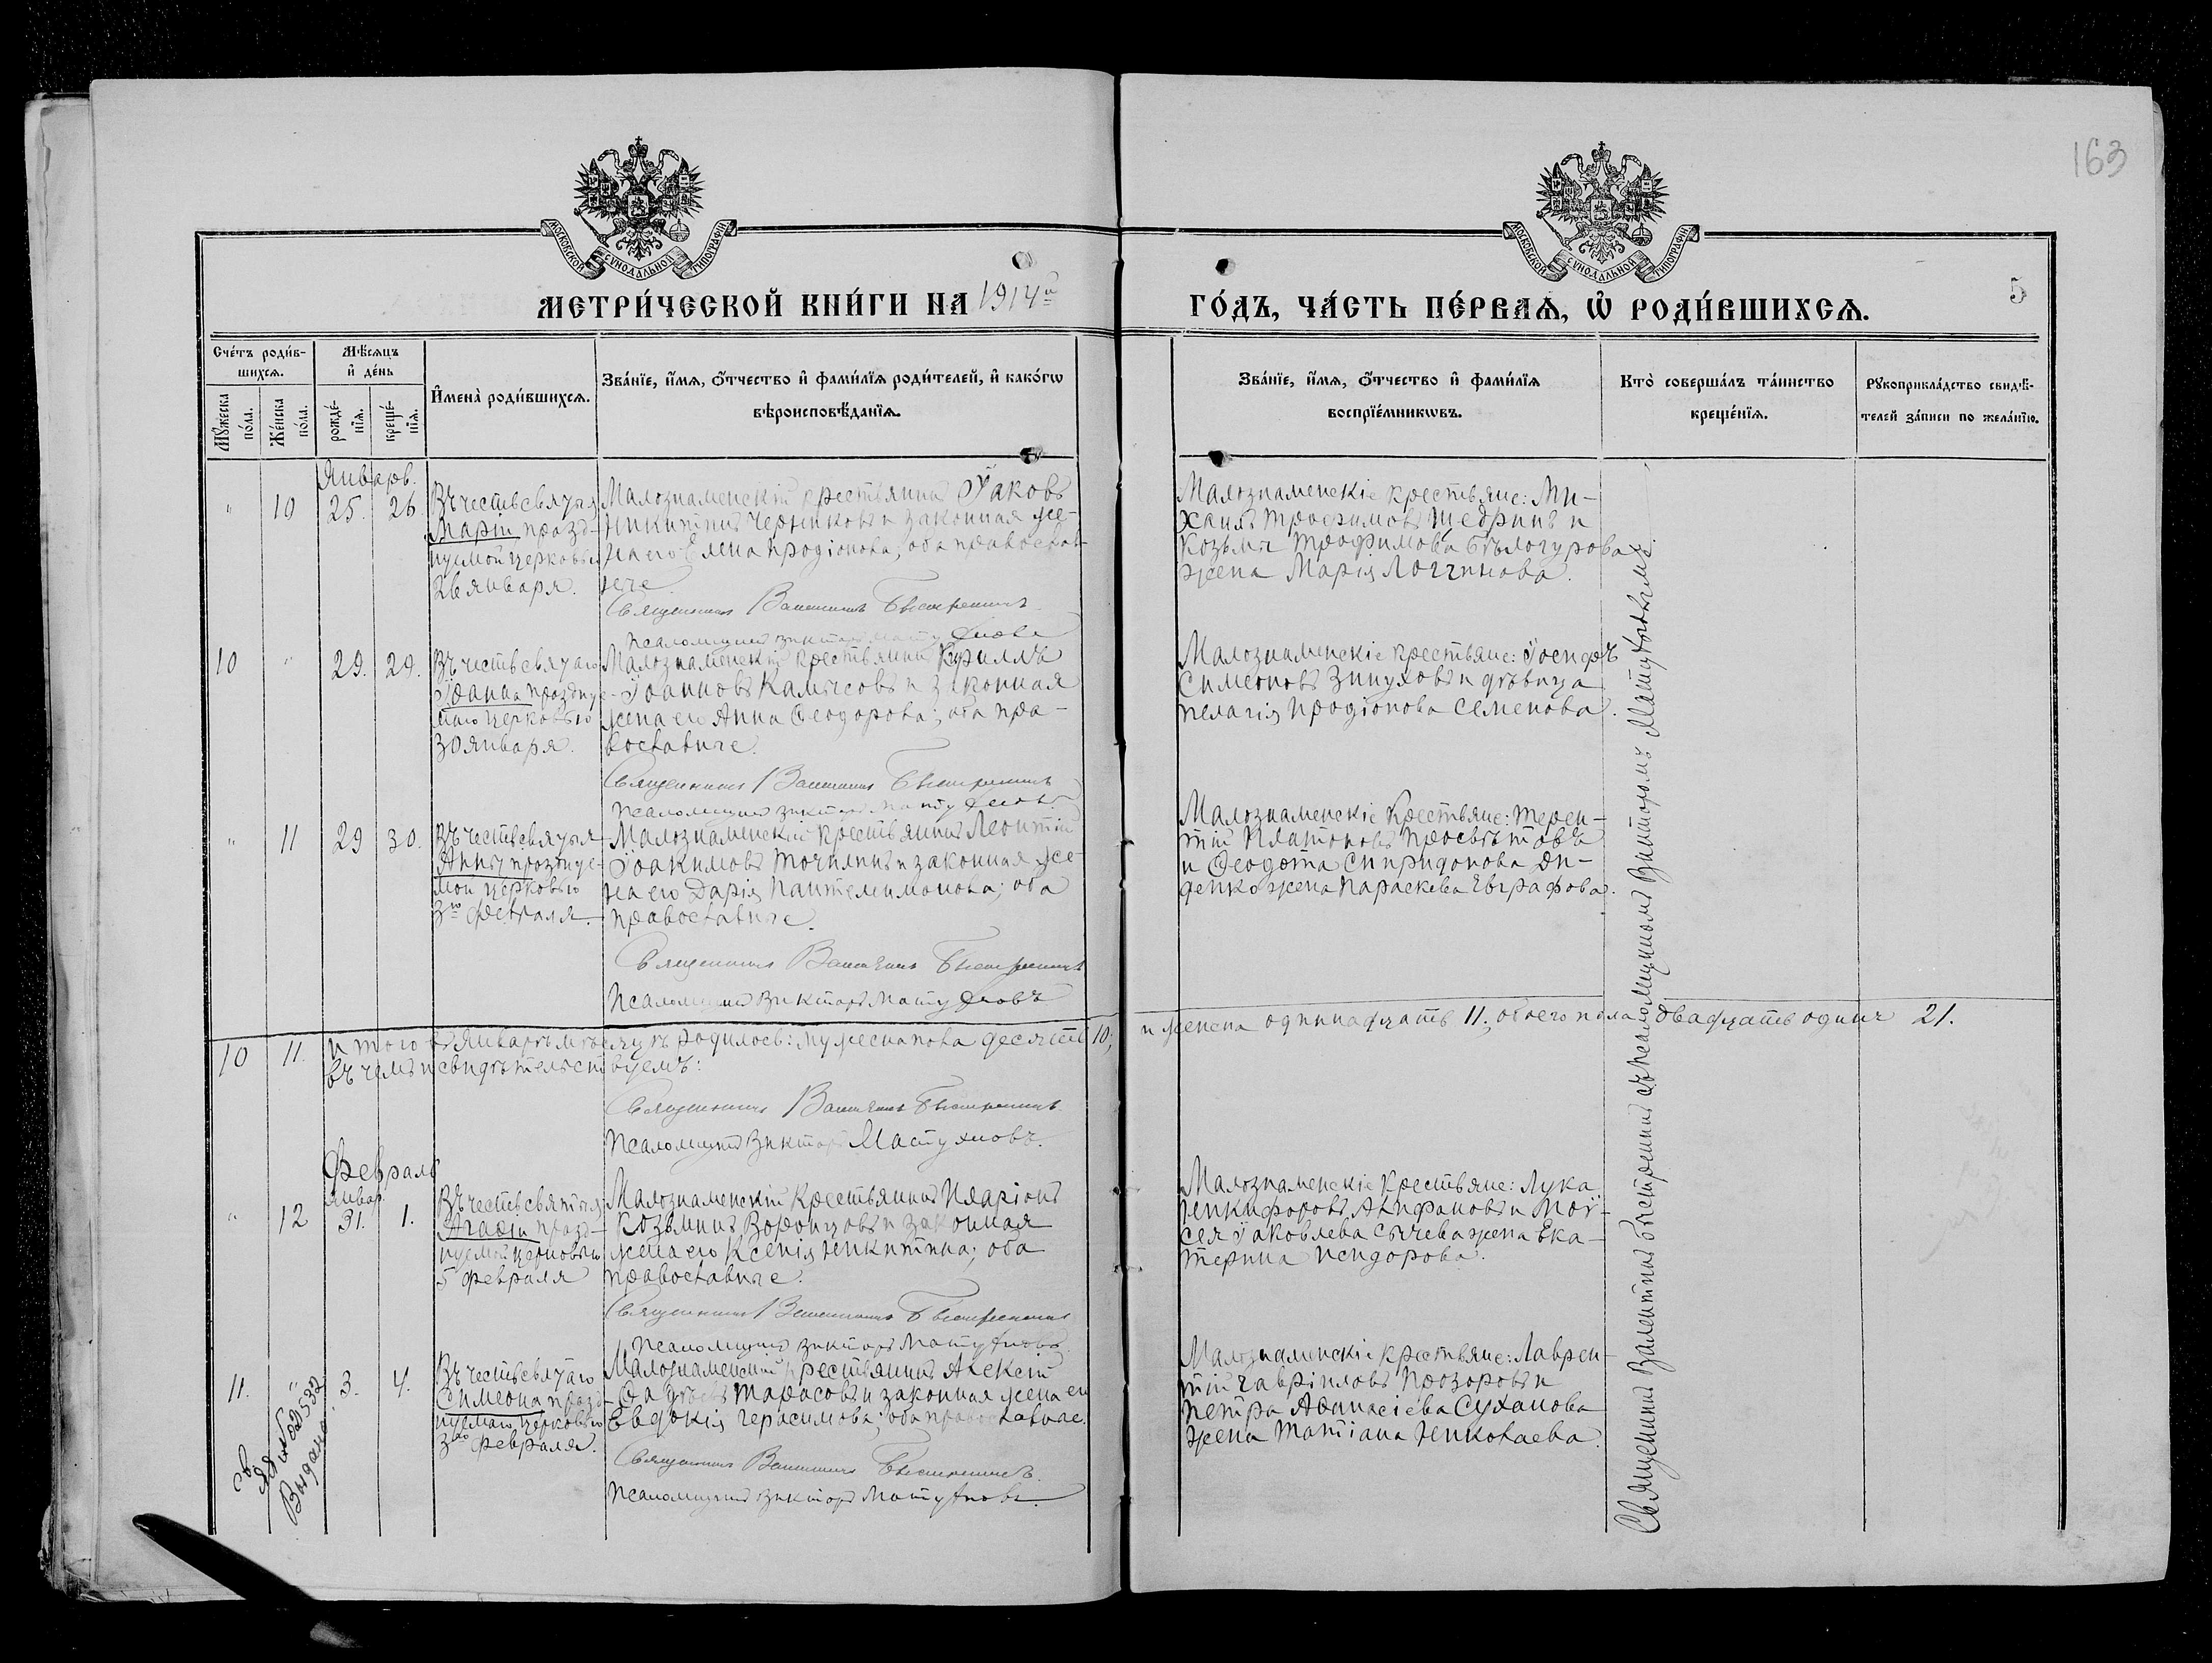 163
МОСКОВСКОЙ СѴНОДАЛЬНОЙ ТИПОГРАФІИ
МОСКОВСКОЙ СѴНОДАЛЬНОЙ ТИПОГРАФІИ
МЕТРИ́ЧЕСКОЙ КНИ́ГИ НА 1914й ГО́ДЪ, ЧА́СТЬ ПЕ́РВАѦ, Ѡ҆ РОДИ́ВШИХСѦ.
5
Сче́тъ роди́в-
шихсѧ.
Мꙋ́жеска по́ла.
Же́нска по́ла.
Мѣ́сѧцъ
и҆ де́нь
рожде́-
нїѧ.
креще́-
нїѧ.
И҆мена̀ роди́вшихсѧ.
Зва́нїе, и҆́мѧ, ѻ҆́тчество и҆ фами́лїѧ роди́телей, и҆ како́гѡ
вѣроисповѣ́данїѧ.
Зва́нїе, и҆́мѧ, ѻ҆́тчество и҆ фами́лїѧ
воспрїе́мникѡвъ.
Кто̀ соверша́лъ та́инство
креще́нїѧ.
Рꙋкоприкла́дство свидѣ́-
телей за́писи по жела́нїю.
Январь.
" 10 25. 26.
Въ честь святыя
Маріи празд-
нуемой церковью
26 января.
Малознаменскій крестьянинъ Іаковъ
Никитинъ Черниковъ и законная же-
на его Елена Иродіонова; оба православ-
ные.
Священникъ Валентинъ Быстреникъ
Псаломщикъ Викторъ Матуфновъ
Малознаменскіе крестьяне: Ми-
хаилъ Трофимовъ Щедринъ и
Козьмы Трофимова Бѣлогурова
жена Марія Логгинова.
10 " 29. 29.
Въ честь святаго
Іоанна празднуе-
маго церковью
30 января.
Малознаменскій крестьянинъ Кириллъ
Іоанновъ Камысовъ и законная
жена его Анна Ѳеодорова; оба пра-
вославные.
Священникъ Валентинъ Быстреникъ
Псаломщикъ Викторъ Матуфновъ
Малознаменскіе крестьяне: Іосифъ
Симеоновъ Зинуховъ и дѣвица
Пелагія Иродіонова Семенова.
" 11 29 30.
Въ честь святыя
Анны празднуе-
мой церковью
3го февраля.
Малознаменскій крестьянинъ Леонтій
Іоакимовъ Точилинъ и законная же-
на его Дарія Пантелимонова; оба
православные.
Священникъ Валентинъ Быстреникъ
Псаломщикъ Викторъ Матуфновъ
Малознаменскіе крестьяне: Терен-
тій Платоновъ Просвѣтовъ
и Ѳеодота Спиридонова Ди-
денко жена Параскева Евграфова.
10 11. Итого въ Январѣ мѣсяцѣ родилось: мужеска пола десять 10; и женска одиннадцать 11; обоего пола двадцать одинъ 21.
въ чемъ и свидѣтельствуемъ:
Священникъ Валентинъ Быстреникъ
Псаломщикъ Викторъ Матуфновъ.
Февраль
Январ.
" 12 31. 1.
Въ честь святыя
Агаѳіи празд-
нуемой церковью
5 февраля
Малознаменскій крестьянинъ Иларіонъ
Козьминъ Воронцовъ и законная
жена его Ксенія Никитина; оба
православные.
Священникъ Валентинъ Быстреникъ
Псаломщикъ Викторъ Матуфновъ
Малознаменскіе крестьяне: Лука
Никифоровъ Анфановъ и Мои-
сея Іаковлева Сычева жена Ека-
терина Исидорова.
11. " 3. 4.
Въ честь святаго
Симеона празд-
нуемаго церковью
3го февраля.
Малознаменскій крестьянинъ Алексій
Ѳаддѣевъ Тарасовъ и законная жена его
Евдокія Герасимова; оба православные.
Священникъ Валентинъ Быстреникъ.
Псаломщикъ Викторъ Матуфновъ.
Малознаменскіе крестьяне: Лаврен-
тій Гавріиловъ Прозоровъ и
Петра Аѳанасіева Суханова
жена Татіана Николаева.
Выдано
Священникъ Валентинъ Быстреникъ съ псаломщикомъ Викторомъ Матуфновымъ.